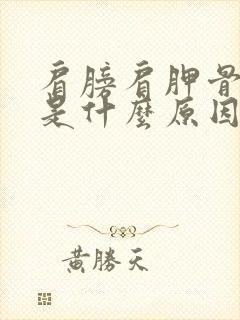 肩膀肩胛骨
是什麼原因
黃勝天